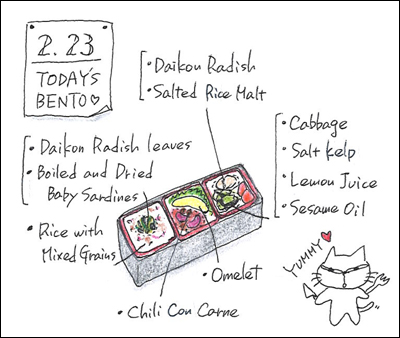 2.23
TODAY'S
BENTO♡
・Daikon Radish
・Salted Rice Malt
・Cabbage
・Salt Kelp
・Lemon Juice
・Sesame Oil
・Daikon Radish leaves
・Boiled and Dried
Baby Sardines
・Rice with
Mixed Grains
・Omelet
・Chili Con Carne
YUMMY